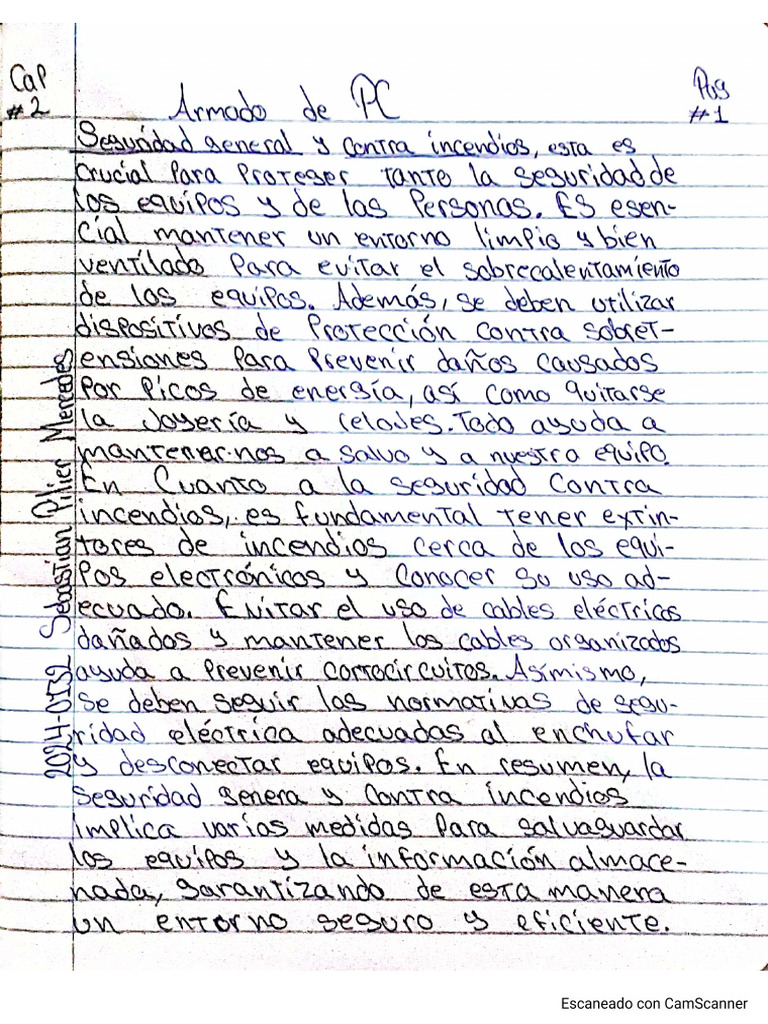 Cap
#2
Armado de PC
Pag
#1
Seguridad general y contra incendios, esta es
crucial para proteger tanto la seguridad de
los equipos y de las personas. Es esen-
cial mantener un entorno limpio y bien
ventilado para evitar el sobrecalentamiento
de los equipos. Además, se deben utilizar
dispositivos de protección contra sobret-
ensiones para prevenir daños causados
por picos de energía, así como quitarse
la joyería y relojes. Todo ayuda a
mantenernos a salvo y a nuestro equipo.
En cuanto a la seguridad contra
incendios, es fundamental tener extin-
tores de incendios cerca de los equi-
pos electrónicos y conocer su uso ad-
ecuado. Evitar el uso de cables eléctricos
dañados y mantener los cables organizados
ayuda a prevenir cortocircuitos. Asimismo,
se deben seguir las normativas de segu-
ridad eléctrica adecuadas al enchufar
y desconectar equipos. En resumen, la
seguridad genera y contra incendios
implica varias medidas para salvaguardar
los equipos y la información almace-
nada, garantizando de esta manera
un entorno seguro y eficiente.
2024-0732 Sebastian Pilier Mercedes
Escaneado con CamScanner